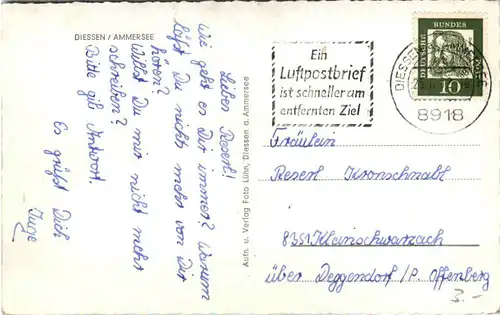 DIESSEN / AMMERSEE
Lieben Reserl!
wie geht es Dir immer? Warum
läßt Du nichts mehr von Dir
hören?
Willst Du mir nicht mehr
schreiben?
Bitte gib Antwort.
Es grüßt Dich
Inge
Aufn. u. Verlag Foto Lühn, Diessen a. Ammersee
Ein
Luftpostbrief
ist schneller am
entfernten Ziel
DEUTSCHE
BUNDES
10
DIESSEN
8918
Fräulein
Reserl Kronschnabl
8351 Kleinschwarzach
über Deggendorf/P. Offenberg
3.-